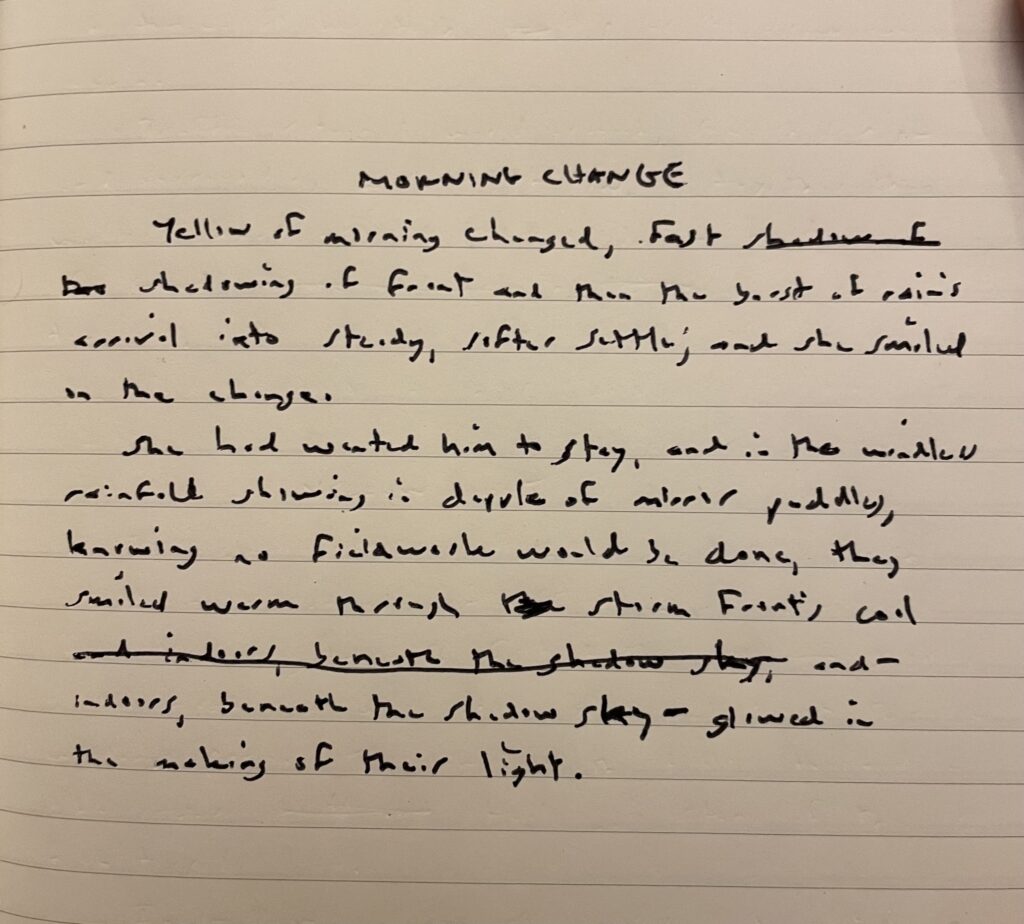 MORNING CHANGE
Yellow of morning changed, fast shadow of
the shadowing of front and then the burst of rain's
arrival into steady, softer settle; and she smiled
in the change.
She had wanted him to stay, and in the windless
rainfall showing in dapple of mirror puddles,
knowing no fieldwork would be done, they
smiled warm through the storm front's cool
and indoors, beneath the shadow sky, and –
indoors, beneath the shadow sky – glowed in
the making of their light.